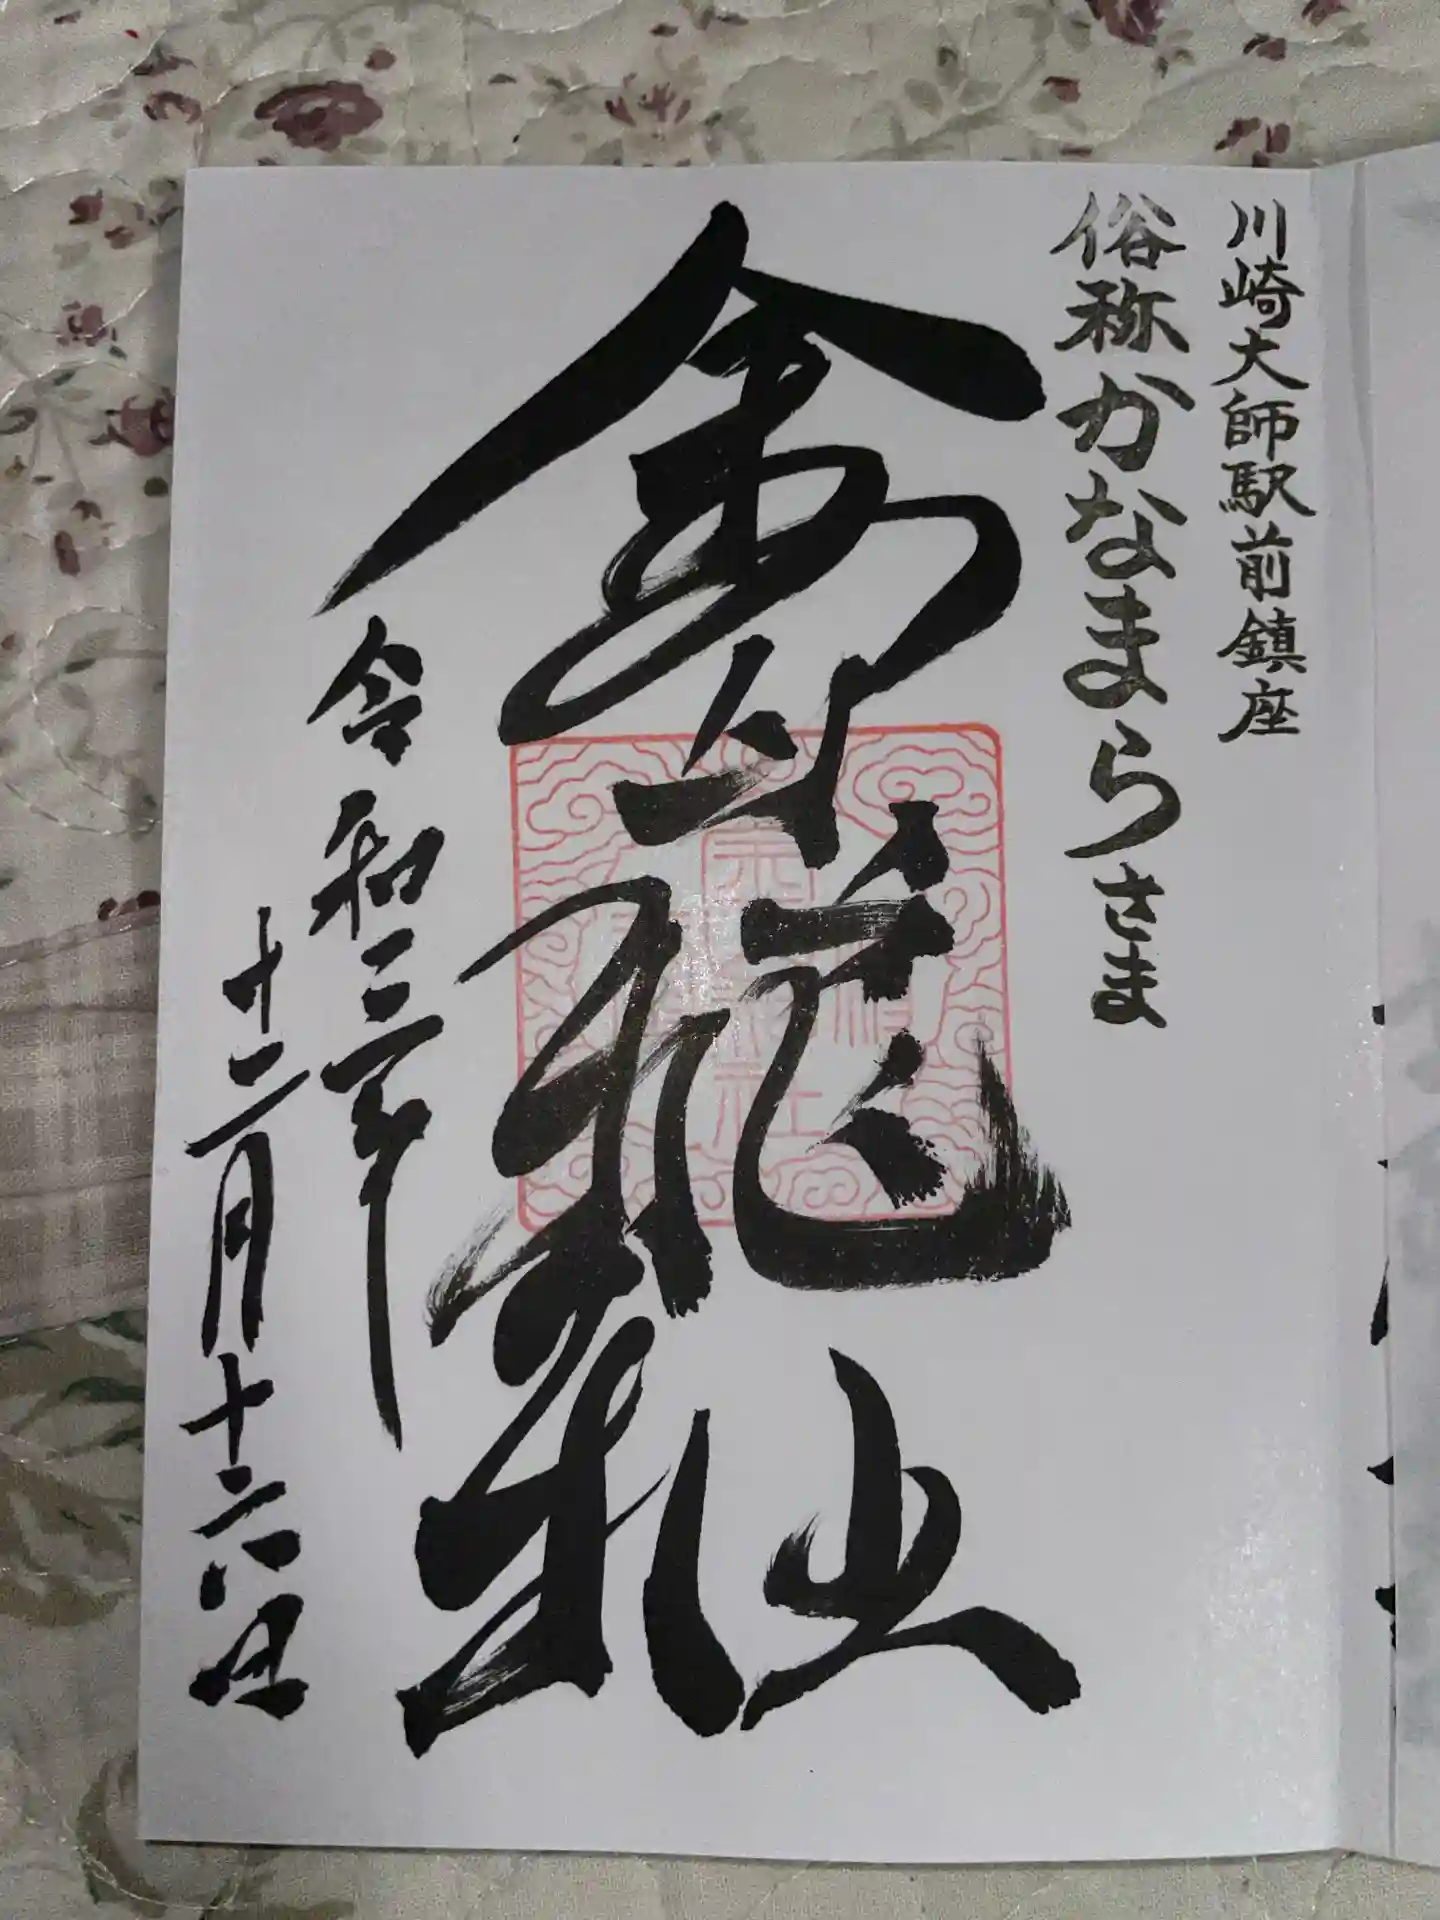 川崎大師駅前鎮座
俗称かなまらさま
金山神社
令和二年
十二月十六日